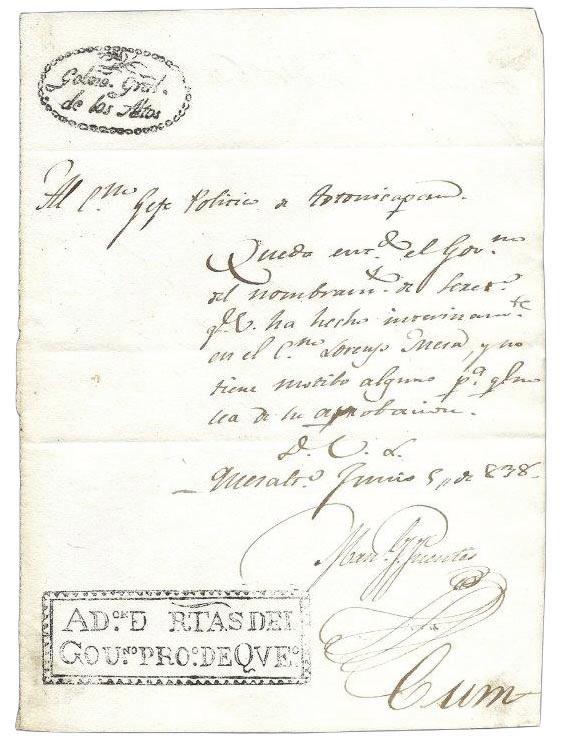 Gobno. Gral.
de los Altos
Al C.no Gefe Politico de Totonicapam.
Quedo entd.o el Gov.no
del nombram.to de Secret.o
q.e V. ha hecho interinam.te
en el C.no Lorenzo Mesa, y no
tiene motibo alguno p.a q.e no
sea de su aprobacion.
D. U. L.
Quesalt.o Junio 5,, de 838-
Man.l J. Fuentes
AD.OR D RTAS DEL
GOUNO. PRO.O DE QVE.O